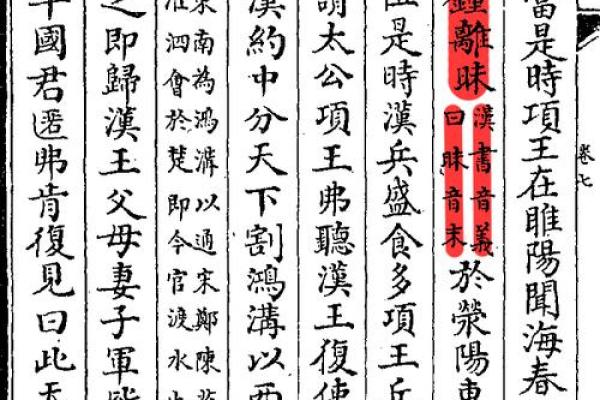 卷七
當是時項王在睢陽聞海春
離眛
漢書音義
曰眛音末
於滎陽東
是時漢兵盛食多項王兵
請太公項王弗聽漢王復使
漢約中分天下割鴻溝以西
東南為鴻溝以通宋鄭陳蔡
淮泗會於楚即今官渡水也
之即歸漢王父母妻子軍皆
平國君匿弗肯復見曰此天